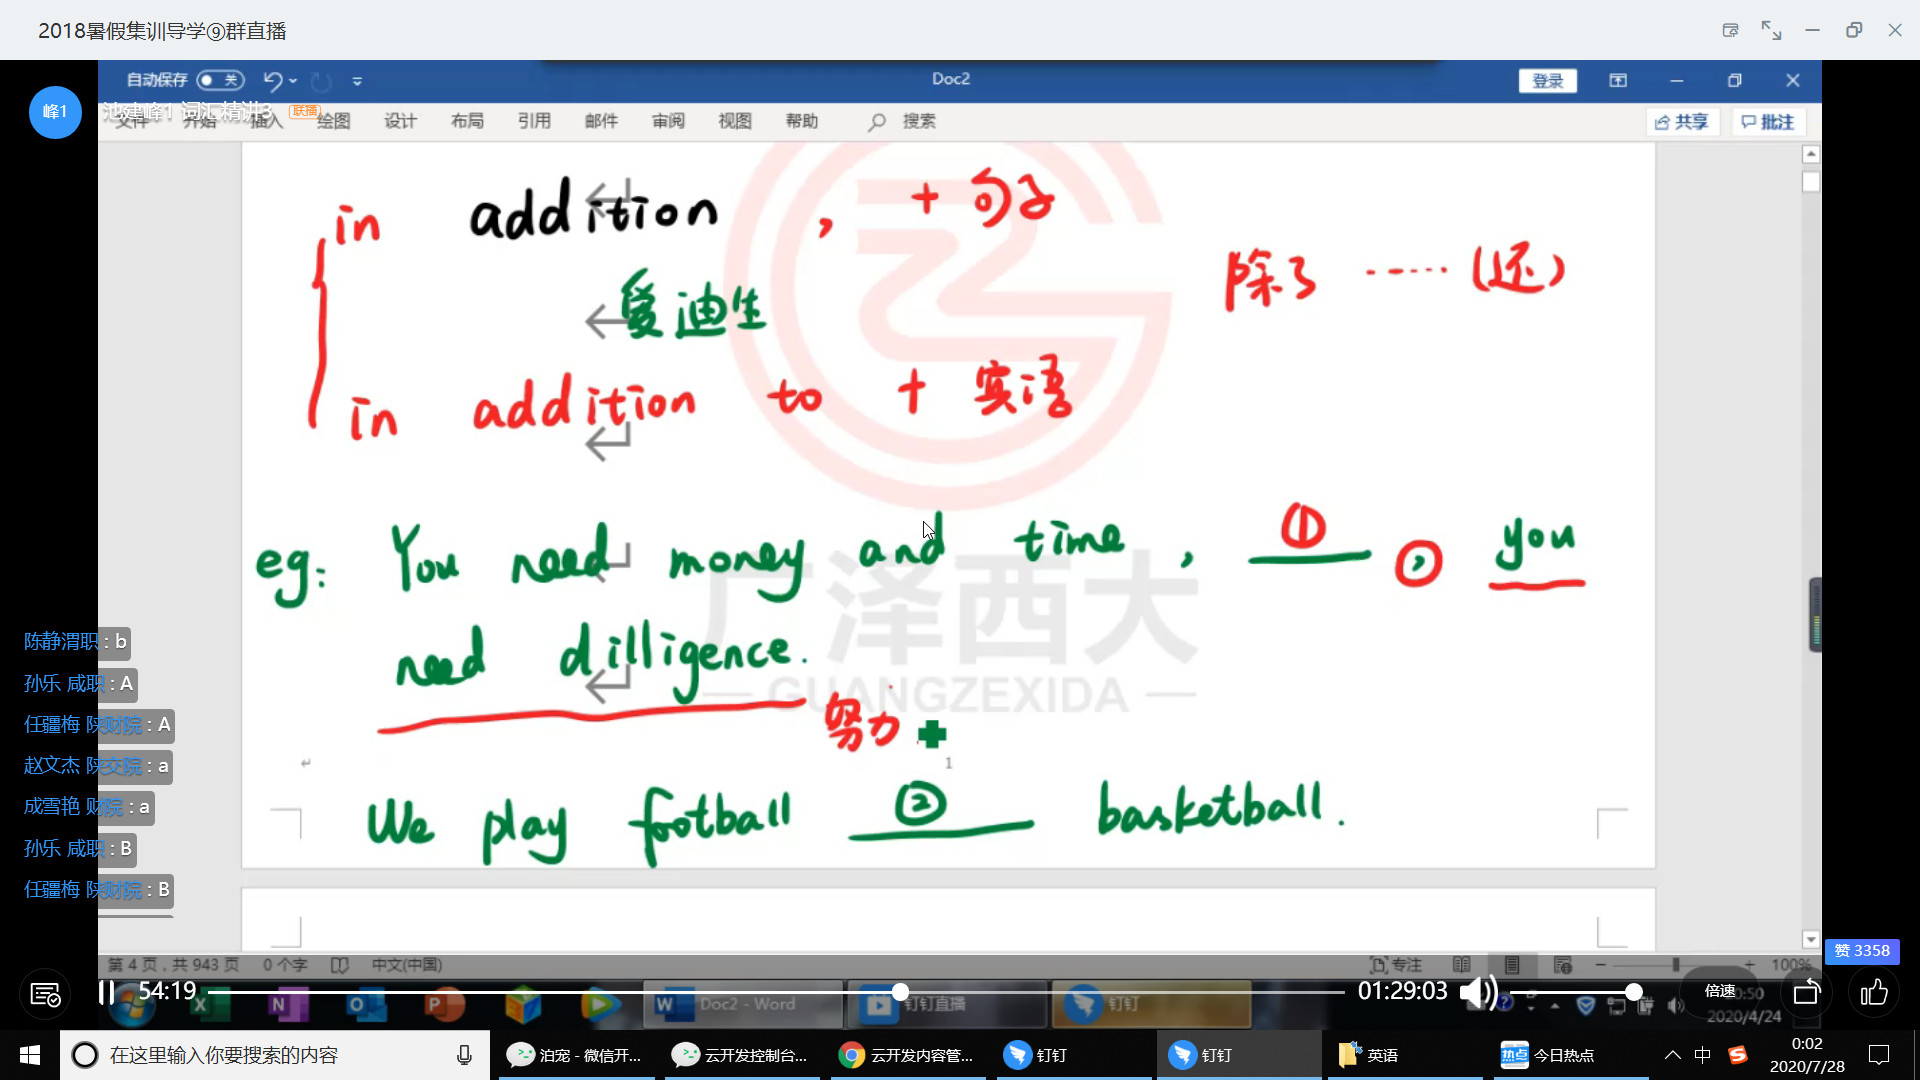 2018暑假集训导学⑨群直播
自动保存 关
Doc2
登录
峰1
池建峰1 词汇精讲3 联播
文件 开始 插入 绘图 设计 布局 引用 邮件 审阅 视图 帮助 搜索
共享 批注
in addition , + 句子
除了 …… (还)
爱迪生
in addition to + 宾语
eg: You need money and time , ① , you
need dilligence.
努力
广泽西大
GUANGZEXIDA
1
We play football ② basketball .
陈静渭职 : b
孙乐 咸职 : A
任疆梅 陕财院 : A
赵文杰 陕交院 : a
成雪艳 财院 : a
孙乐 咸职 : B
任疆梅 陕财院 : B
赞 3358
第 4 页，共 943 页 0 个字 中文(中国)
专注
100%
54:19
01:29:03
倍速
Doc2 - Word
钉钉直播
钉钉
2020/4/24
在这里输入你要搜索的内容
泊宠 - 微信开...
云开发控制台...
云开发内容管...
钉钉
钉钉
英语
热点 今日热点
中
0:02
2020/7/28